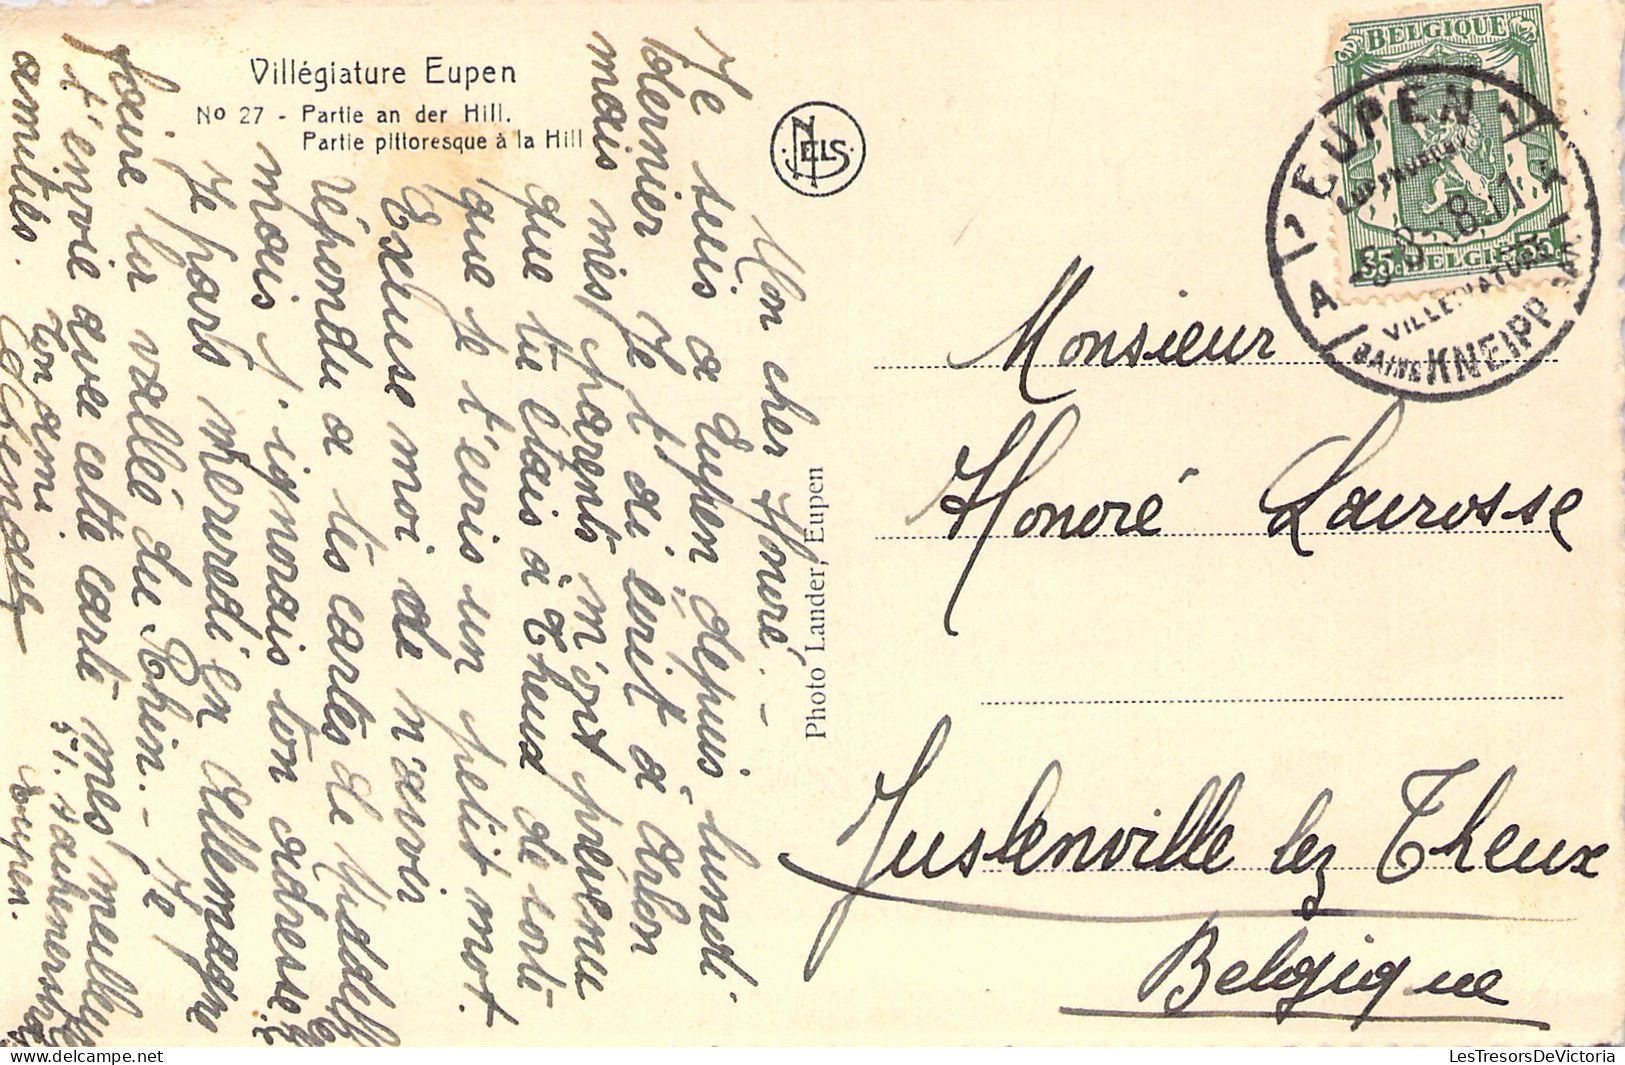 Villégiature Eupen
No 27 - Partie an der Hill.
Partie pittoresque à la Hill
NELS
Photo Lander, Eupen
BELGIQUE
35c BELGIE 35
EUPEN 1
VILLEGIATURE
BAINS KNEIPP
Mon cher Honoré. -
Je suis a Eupen depuis lundi
dernier. Je t'ai écrit d'Arlon
mais mes parents m'ont prévenu
que tu étais à Theux de sorte
que je t'écris un petit mot.
Excuse moi de n'avoir
répondu a tes cartes de
mais j'ignorais ton adresse.
Je pars mercredi en Allemagne
faire la vallée du Rhin. - Je
t'envoie avec cette carte mes meilleures
amitiés.
Ton ami
51.
Eupen.
Monsieur
Honoré Larosse
Juslenville lez Theux
Belgique
LesTresorsDeVictoria